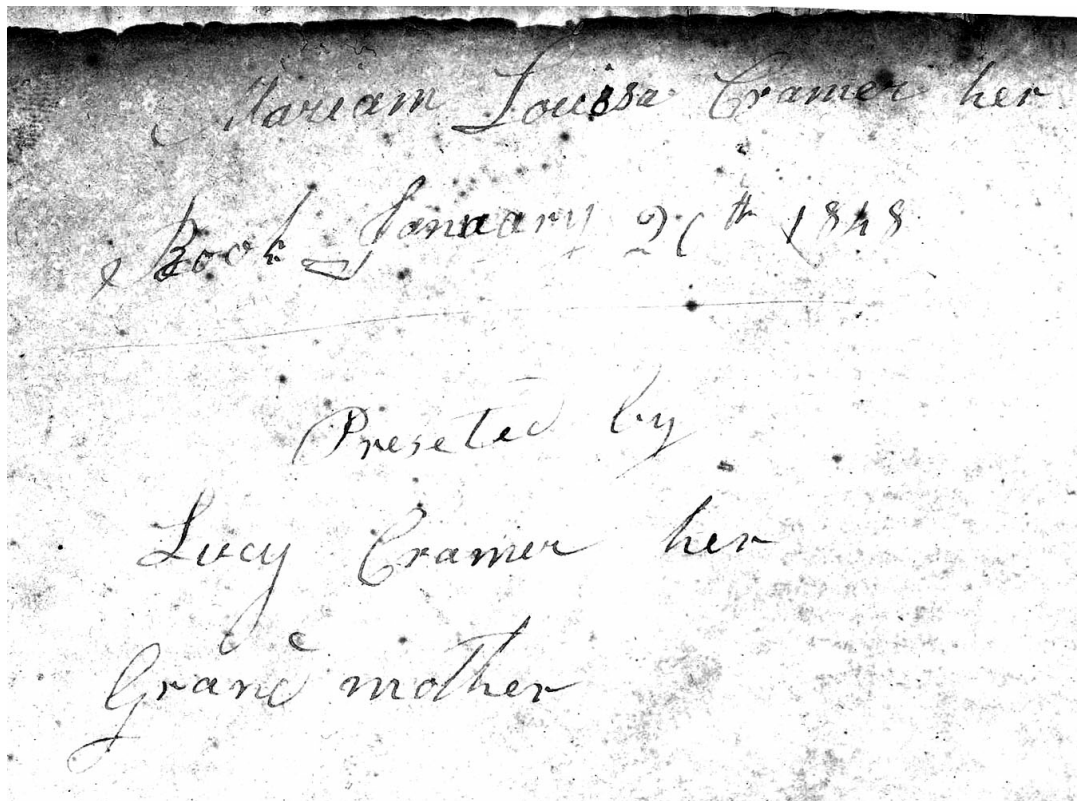 Mariam Louisa Cramer her
Book January 26th 1848
Preseted by
Lucy Cramer her
Grand mother